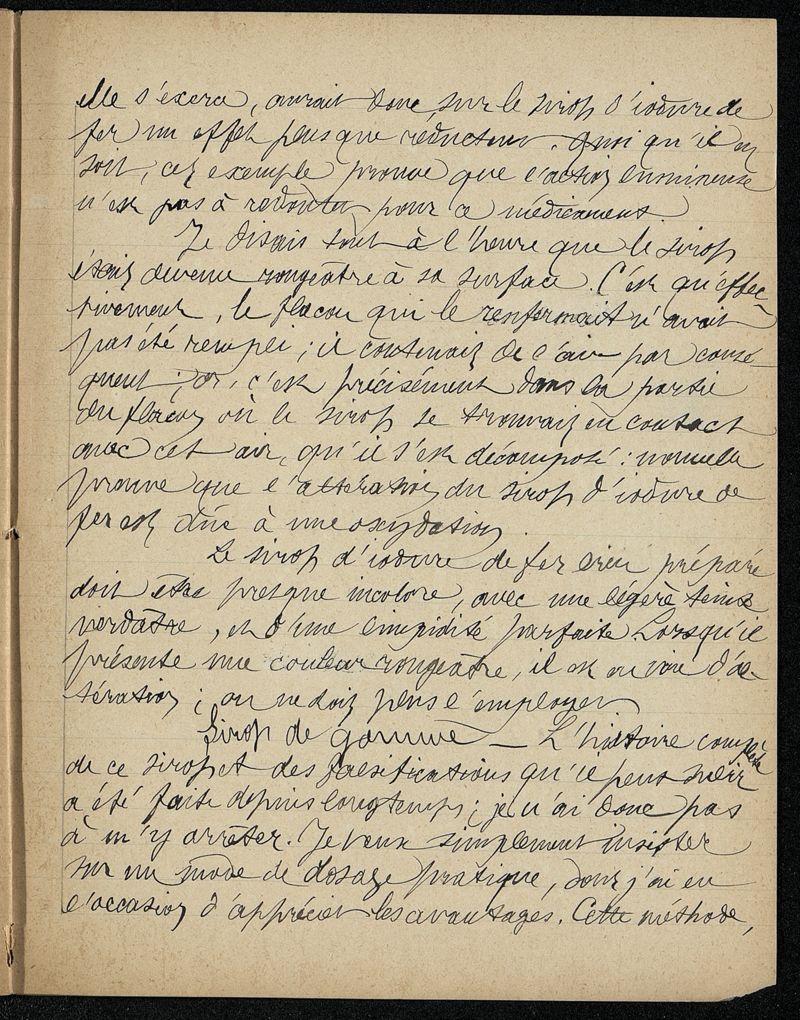 elle s'exerce, aurait donc sur le sirop d'iodure de
fer un effet plus que réducteur. Quoi qu'il en
soit, cet exemple prouve que l'action lumineuse
n'est pas à redouter pour ce médicament.
Je disais tout à l'heure que le sirop
était devenu rougeâtre à sa surface. C'est qu'effec-
tivement, le flacon qui le renfermait n'avait
pas été rempli ; il contenait de l'air par consé-
quent ; or, c'est précisément dans la partie
du flacon où le sirop se trouvait en contact
avec cet air, qu'il s'est décomposé : nouvelle
preuve que l'altération du sirop d'iodure de
fer est due à une oxydation.
Le sirop d'iodure de fer bien préparé
doit être presque incolore, avec une légère teinte
verdâtre, et d'une limpidité parfaite. Lorsqu'il
présente une couleur rougeâtre, il est en voie d'al-
tération ; on ne doit plus l'employer.
Sirop de gomme — L'histoire complète
de ce sirop et des falsifications qu'il peut subir
a été faite depuis longtemps ; je n'ai donc pas
à m'y arrêter. Je veux simplement insister
sur un mode de dosage pratique, dont j'ai eu
l'occasion d'apprécier les avantages. Cette méthode,